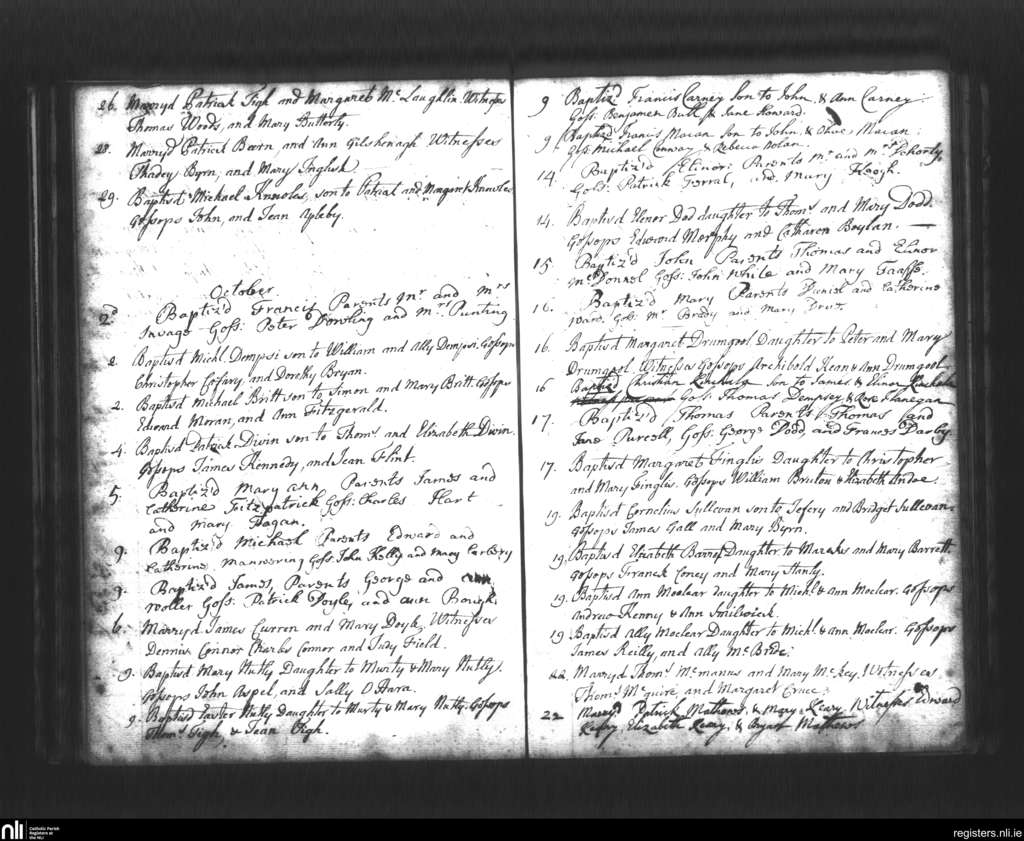 26. Marryd Patrick Tigh and Margaret Mc Laughlin. Witness
Thomas Woods, and Mary Butterly.
28. Marryd Patrick Beern and Ann Gilshenagh Witnesses
Thadey Byrn, and Mary Inglish.
29. Baptisd Michael Knowles, son to Patrick and Margaret Knowles
Gossops John, and Jean Apleby.
October
2d Baptiz'd Francis Parents Mr and Mrs
Savage Goss: Peter Dowling and Mrs Punting
2. Baptisd Michl. Dempsi son to William and Ally Dempsi. Gossops
Christopher and Dorothy Bryan.
2. Baptisd Michael Britt son to Simon and Mary Britt. Gossops
Edward Moran, and Ann Fitzgerald.
4. Baptisd Patrick Divin son to Thoms. and Elizabeth Divin.
Gossops James Kennedy, and Jean Flint.
5. Baptiz'd Mary Ann Parents James and
Catherine Fitzpatrick Goss: Charles Hart
and Mary Fagan.
9. Baptiz'd Michael Parents Edward and
Catherine Mannering Goss: John Kelly and Mary Corbery
9. Baptiz'd James, Parents George and Ann
Woller Goss: Patrick Doyle, and Ann
6. Marryd James Curren and Mary Doyle, Witnesses
Dennis Connor Charles Connor and Judy Field.
9. Baptisd Mary Nutly Daughter to Murty & Mary Nutly.
Gossops John Aspel, and Sally O Hara.
9. Baptisd Nutly Daughter to Murty & Mary Nutly. Gossops
Thoms. Tigh, & Jean Tigh.
9 Baptiz'd Francis Carney Son to John, & Ann Carney:
Goss: Benjamen Jane Howard.
9. Baptiz'd Francis Maran Son to John, & Maran:
Goss: Michael Conway & Rebecca Nolan.
14. Baptiz'd Elinor: Parents Mr and Mrs Doherty
Goss: Patrick Farral, and Mary Keogh.
14. Baptisd Elenor Dod daughter to Thoms. and Mary Dodd.
Gossops Edward Morphy and Catharen Boylan.
15. Baptiz'd John Parents Thomas and Elinor
McDonnel Goss: John White and Mary Taaffe.
16. Baptiz'd Mary Parents Daniel and Catherine
Ward. Goss: Mr Brady and Mary
16. Baptisd Margaret Drumgool Daughter to Peter and Mary
Drumgool. Witnesses Gossops Archibold Kean & Ann Drumgool
16 Baptiz'd Christian Son to James & Elinor
Goss: Thomas Dempsey & Rose Flanegan
17. Baptiz'd Thomas Parents Thomas and
Jane Purcell, Goss: George Dodd, and Frances Darby
17. Baptisd Margaret Finglis Daughter to Christopher
and Mary Finglis. Gossops William Bruton & Elizabeth
19. Baptisd Cornelius Sullevan son to Jefery and Bridget Sullevan.
Gossops James Gall and Mary Byrn.
19. Baptisd Elizabeth Barret Daughter to Marcks and Mary Barrett.
Gossops Franck Coney and Mary Stanly.
19. Baptisd Ann Moclear daughter to Michl. & Ann Moclear. Gossops
Andrew Kenny & Ann Smilwick.
19 Baptisd Ally Moclear Daughter to Michl. & Ann Moclear. Gossops
James Reilly and Ally Mc Bride.
22. Marryd Thoms. Mc manus and Mary Mc Key. Witnesses
Thoms. Mc guire, and Margaret Cruce.
22 Marryd Patrick Mathews & Mary Keary Witnesses Edward
Keary, Elizabeth Keary, & Bryan Mathews
nli
Catholic Parish
Registers at
the NLI
registers.nli.ie